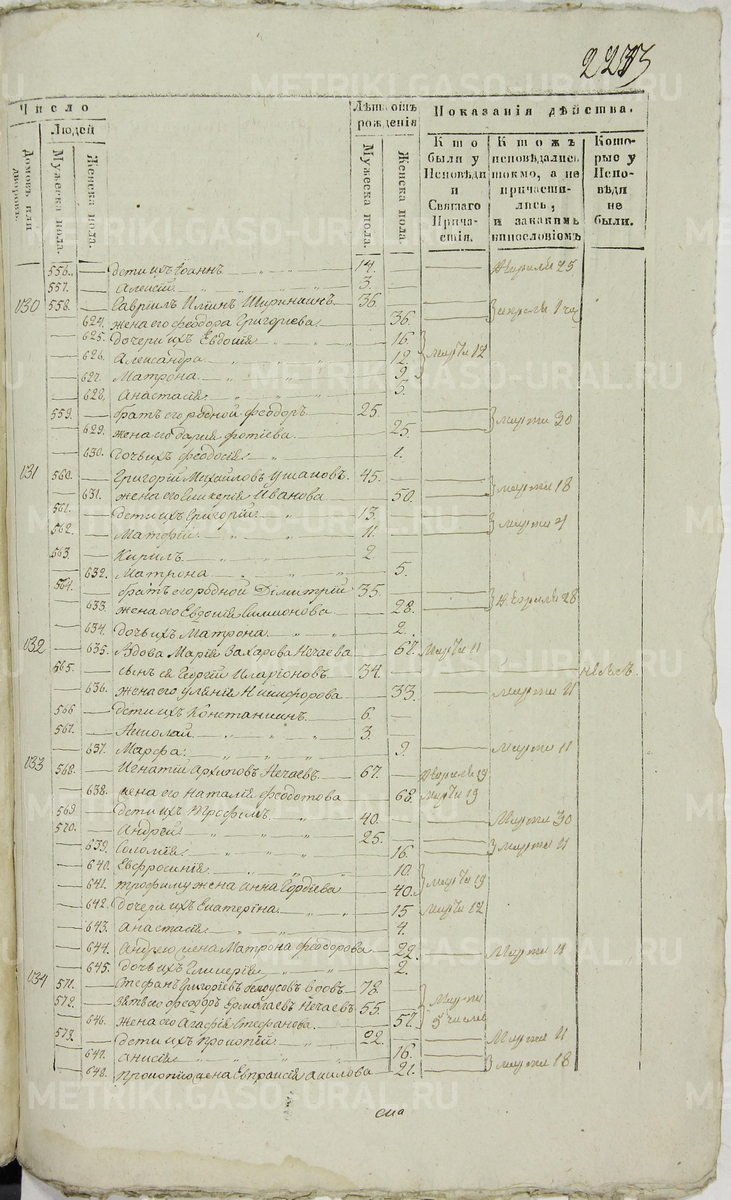 Число
Людей
Домовъ или дворовъ.
Мужеска пола.
Женска пола.
Лѣта отъ рожденія
Мужеска пола.
Женска пола.
Показанія дѣйства.
Кто были у Исповѣди и Святаго Причастія.
Ктожъ исповѣдались токмо, а не причастились, и за какимъ винословіемъ
Которые у Исповѣди не были.
556. дѣти ихъ Іоаннъ 14. Апрѣля 25
557. Алексій 3.
130 558. Гавріилъ Илiинъ 36.
624. жена его Феодора Григориева 36. апреля
625. дочери ихъ Евдокія 16.
626. Александра 12. Марта 12
627. Матрона 9.
628. Анастасія 5.
559. братъ его родной Феодоръ 25.
629. жена его Дарія Фотіева 25. Марта 30
630. дочь ихъ Феодосія 1.
131 560. Григорій Михайловъ Ушаковъ 45.
631. жена его Гликерія Иванова 50. Марта 18
561. дѣти ихъ Григорій 13.
562. Матфій 11. Марта
563. Кирилъ 2
632. Матрона 5.
564. братъ его родной Димитрій 35.
633. жена его Евдокія Симионова 28. Апреля 28
634. дочь ихъ Матрона 2.
132 635. вдова Марія Захарова Нечаева 67. Марта 11
565. сынъ ея Георгій Иларіоновъ 34.
636. жена его Уліянія Никифорова 33. Марта 11
566 дѣти ихъ Константинъ 6.
567. Николай 3.
637. Марфа 9. Марта 11
133 568. Игнатій Архиповъ Нечаевъ 67. Апреля 19
638. жена его Наталія Феодотова 68. Марта 19
569. дѣти ихъ Трофимъ 40. Марта 30
570. Андрей 25. Марта 11
639. Соломія 16.
640. Евфросинія 10.
641. Трофиму жена Анна Гордіева 40. Марта 19
642. дочери ихъ Екатерина 15 Марта 12
643. Анастасія 4.
644. Андрею жена Матрона Феодорова 22. Марта 11
645. дочь ихъ Гликерія 2.
134 571. Стефанъ Григоріевъ 78.
572. зять его Феодоръ Нечаевъ 55. Марта
646. жена его Агафія Стефанова 57. 5 числа
573. дѣти ихъ Прокопій 22. Марта 11
647. Анисія 16.
648. Прокопію жена Евпраксія 21. Марта 18
METRIKI.GASO-URAL.RU